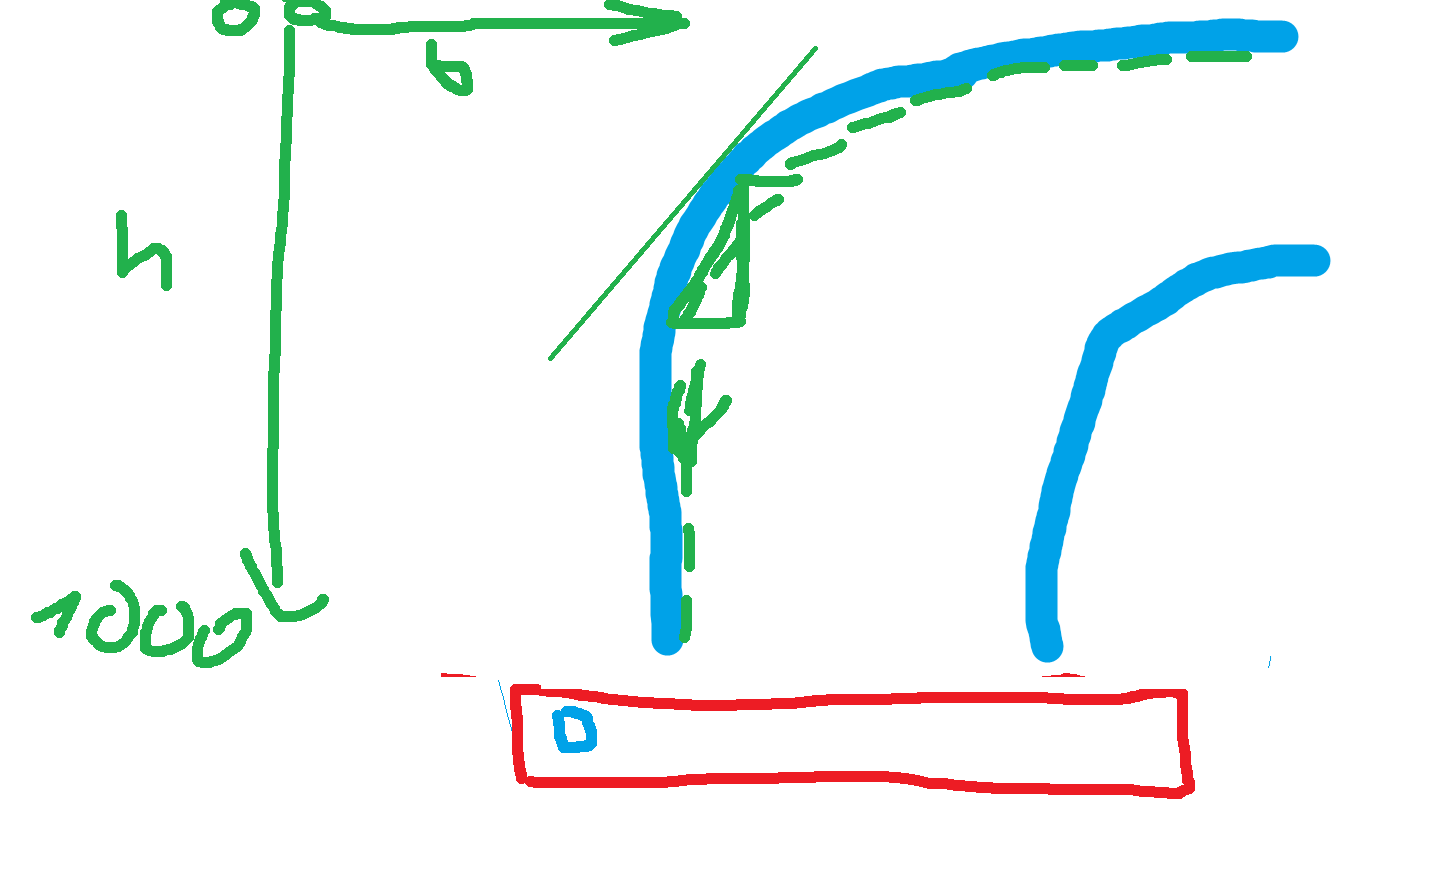 0 0
b
h
1000